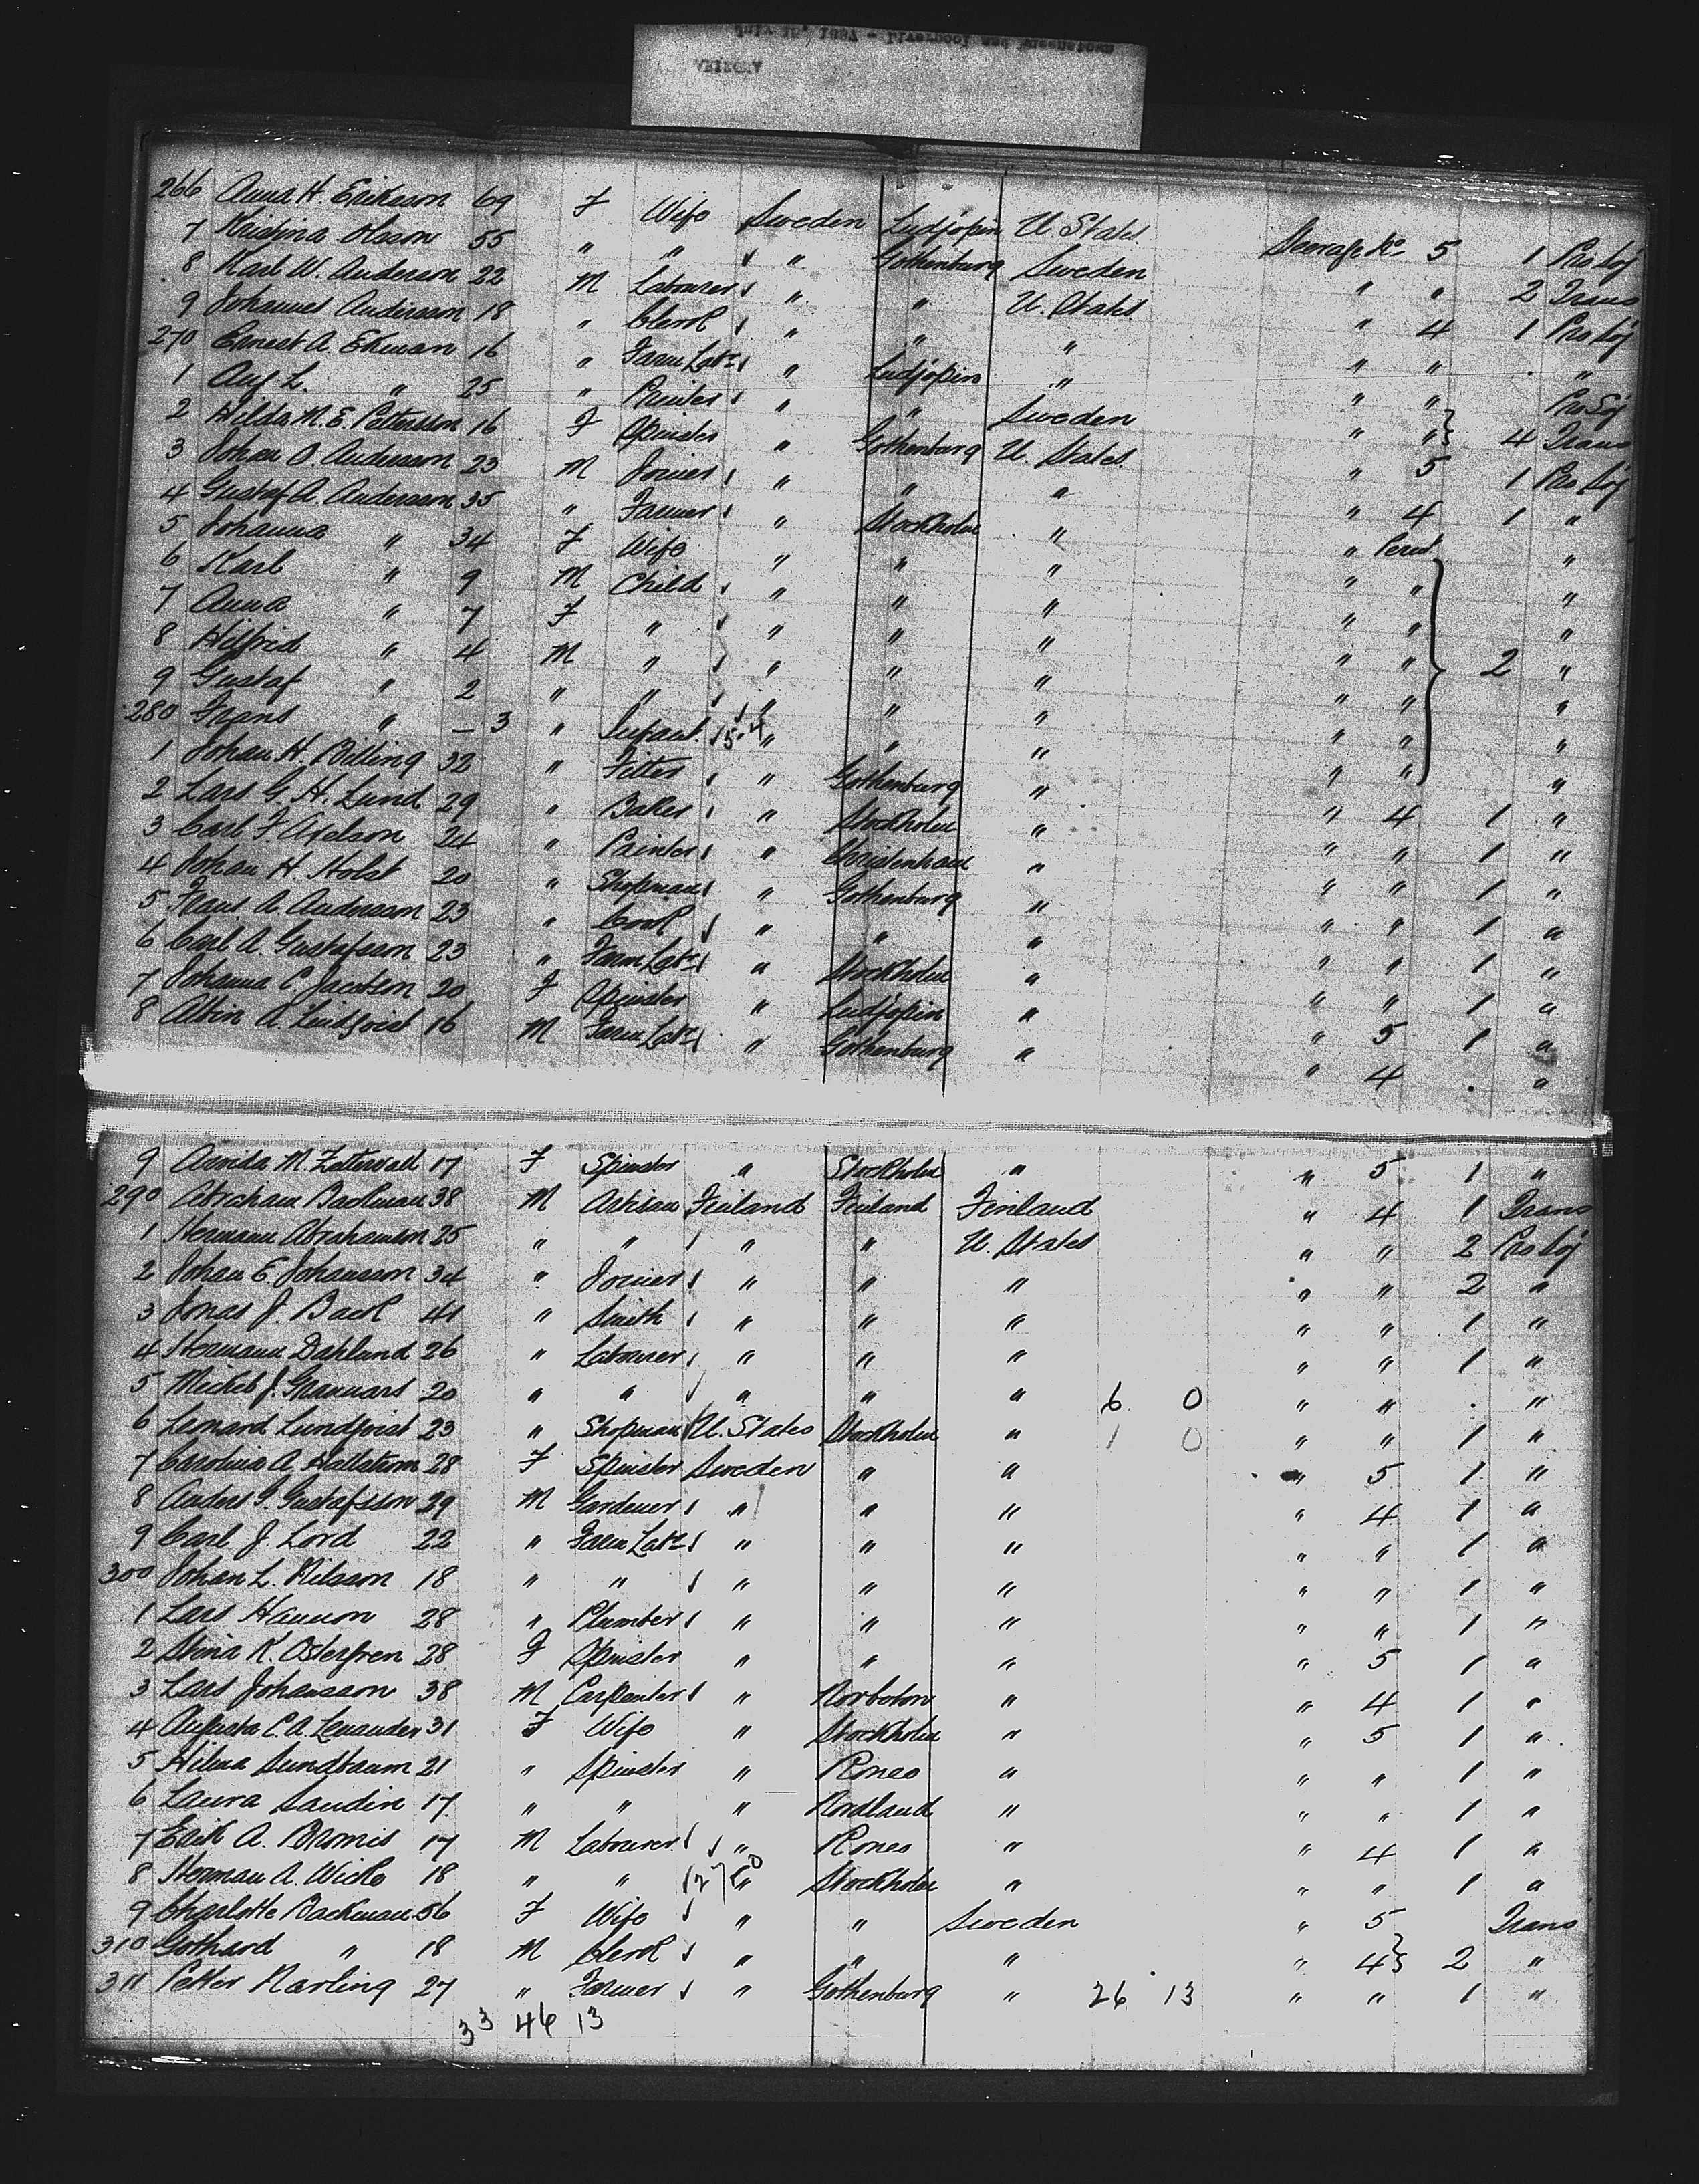 266 Anna H. Erikson 69 F Wife Sweden Ludjopin U. States Steerage No 5 1 Pro Soj
7 Kristina Olsson 55 " " " Gothenburg Sweden " " 2 Trans
8 Karl W. Anderson 22 M Labourer " " U. States " 4 1 Pro Soj
9 Johannes Anderson 18 " Clerk " " " " " . "
270 Ernest A. Ekman 16 " Farm Labr " Ludjopin " " " Pro Soj
1 Aug L. " 25 " Painter " " Sweden " " 4 Trans
2 Hilda M. E. Petersson 16 F Spinster " Gothenburg U. States " 5 1 Pro Soj
3 Johan O. Anderson 23 M Joiner " " " " 4 1 "
4 Gustaf A. Anderson 35 " Farmer " Stockholm " " "
5 Johanna " 34 F Wife " " " " " "
6 Karl " 9 M Child " " " " " "
7 Anna " 7 F " " " " " " "
8 Hilfrid " 4 M " " " " " " 2 "
9 Gustaf " 2 " " " " " " " "
280 Frans " – 3 " Infant 5 4 " " " " " "
1 Johan H. Billing 32 " Fitter " Gothenburg " " 4 1 "
2 Lars G. H. Lund 29 " Baker " Stockholm " " " 1 "
3 Carl F. Axelson 24 " Painter " " " " 1 "
4 Johan H. Holst 20 " Shopman " Gothenburg " " " 1 "
5 Frans A. Anderson 23 " Cook " " " " " 1 "
6 Carl A. Gustafsson 23 " Farm Labr " Stockholm " " " 1 "
7 Johanna C. Jacobsen 20 F Spinster " Ludjopin " " 5 1 "
8 Albin A. Lindqvist 16 M Farm Labr " Gothenburg " " 4 . "
9 Arvida M. Zettervall 17 F Spinster " Stockholm " " 5 1 "
290 Abraham Backman 38 M Artisan Finland Finland Finland " 4 1 Trans
1 Hermann Abrahamson 25 " " " " U. States " " 2 Pro Soj
2 Johan E. Johansson 34 " Joiner " " " " " 2 "
3 Jonas J. Back 41 " Smith " " " " " 1 "
4 Hermann Dahland 26 " Labourer " " " " " 1 "
5 Mickel J. 20 " " " " " 6 0 " " . "
6 Leonard Lundqvist 23 " Shopman U. States Stockholm " 1 0 " " 1 "
7 Carolina A. Hallstrom 28 F Spinster Sweden " " " 5 1 "
8 Anders G. Gustafsson 29 M Gardener " " " " 4 1 "
9 Carl J. Lord 22 " Farm Labr " " " " " 1 "
300 Johan L. Nilsson 18 " " " " " " " 1 "
1 Lars Hannon 28 " Plumber " " " " " 1 "
2 Stina K. Ostergren 28 F Spinster " " " " 5 1 "
3 Lars Johansson 38 M Carpenter " Norboton " " 4 1 "
4 Augusta C. A. Lenander 31 F Wife " Stockholm " " 5 1 "
5 Hilma Sundbaum 21 " Spinster " Roneo " " " 1 "
6 Laura Sandin 17 " " " Nordland " " " 1 "
7 Erik A. Bromis 17 M Labourer " Roneo " " 4 1 "
8 Herman A. 18 " " " Stockholm " " " 1 "
9 Charlotte Backman 56 F Wife " " Sweden " 5 Trans
310 Gothard " 18 M Clerk " " " " 4 2 "
311 Petter Narling 27 " Farmer " Gothenburg " 26 13 " " 1 "
33 46 13